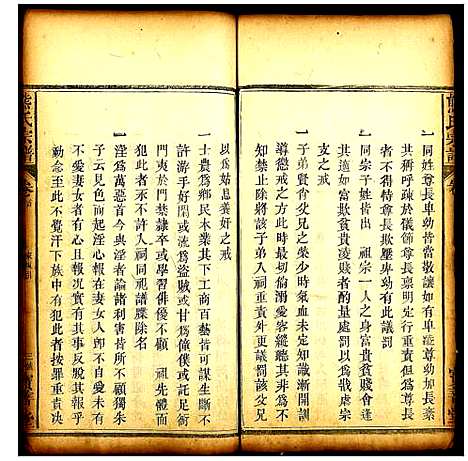 熊氏宗譜
一同姓尊長卑幼皆當敬讓如有卑幼凌辱尊幼加長索
其稱呼疎於儀節尊長稟明定行責罰但凡為尊長
者不得特尊長欺壓卑幼有此議罰
一同宗子姓皆出 祖宗一人之身富貴貧賤會逢
其適如富欺貧貴凌賤者酌量處罰以為戕虐宗
支之戒
一子弟賢否父兄之榮辱少時氣血未定知識漸開訓
導懲戒之方此時最切倘溺愛容縱聽其非為不
知禁止除將該子弟入祠責重外更議罰該父兄
以為姑息養奸之戒
一士貴為鄉民本業其下工商百藝皆可謀生斷不
許游手好閒或流為盜賊或甘為僮僕或託足衙
門夷於門禁隸卒與夫習學俳優不顧 祖先體面
犯此者永不許入祠同視譜牒除名
一淫為萬惡首今與淫者論諸利害皆所不顧獨朱
子云見色而起淫心報在妻女人即不自愛未有
不愛其妻女者清夜一思以己心視此事反觀其報乎
動念至此不覺汗下族中有犯此者按罪重責決
熊氏宗譜